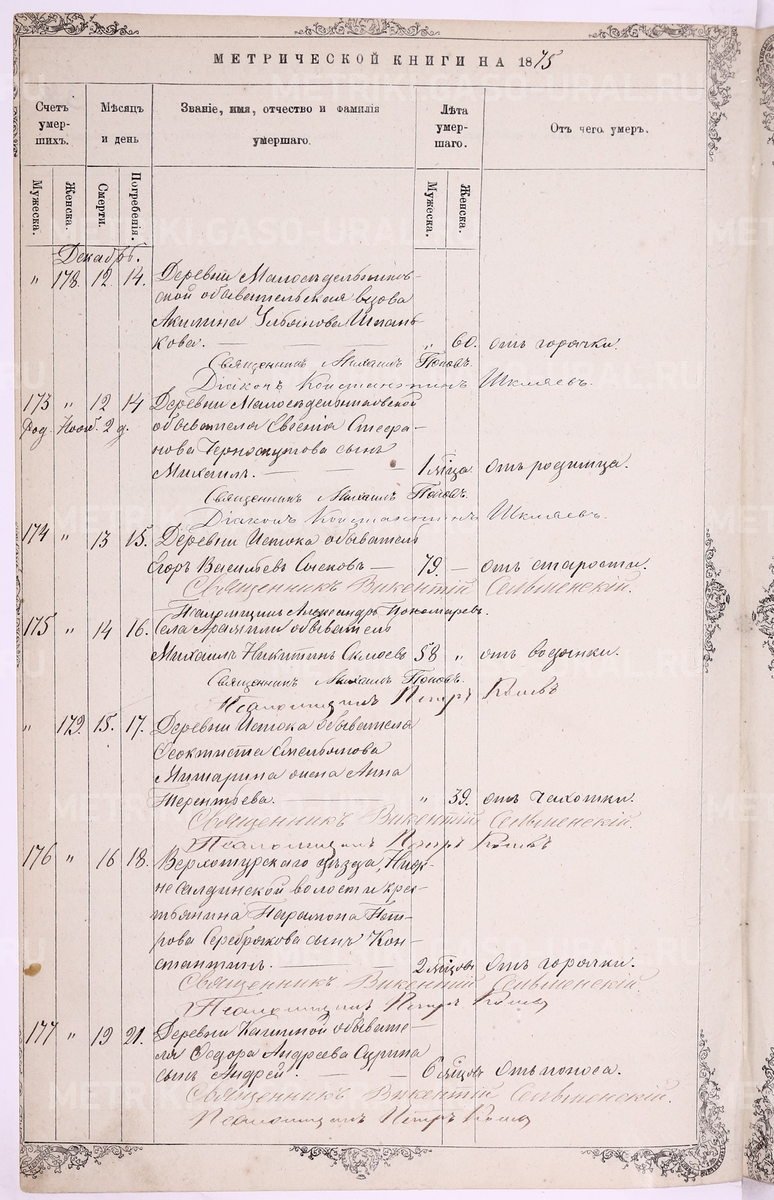 МЕТРИЧЕСКОЙ КНИГИ НА 1875
Счетъ умершихъ.
Мѣсяцъ и день
Званіе, имя, отчество и фамилія умершаго.
Лѣта умершаго.
Отъ чего умеръ.
Мужеска.
Женска.
Смерти.
Погребенія.
Мужеска.
Женска.
Декабрь.
„ 178. 12 14. Деревни Малосѣдельников-
ской обывательская вдова
Акилина Ульянова Шпань-
кова. — „ 60. отъ горячки.
Священникъ Михаилъ Поповъ.
Діаконъ Константинъ Шкляевъ.
173 „ 12 14 Деревни Малосѣдельниковской
Род. Нояб. 2 д. обывателя Евгенія Стефа-
нова Черноскутова сынъ
Михаилъ. — 1 мѣсца отъ родимца.
Священникъ Михаилъ Поповъ.
Діаконъ Константинъ Шкляевъ.
174 „ 13 15. Деревни Истока обыватель
Егоръ Васильевъ — 79. — отъ старости.
Священникъ Викентій
Псаломщикъ Александръ Пономаревъ.
175 „ 14 16. Села Арамили обыватель
Михаилъ Никитинъ 58 „ отъ водянки.
Священникъ Михаилъ Поповъ.
Псаломщикъ Петръ
„ 179. 15. 17. Деревни Истока обывателя
Феоктиста Емельянова
жена Анна
Терентьева. — „ 39. отъ чахотки.
Священникъ Викентій
Псаломщикъ Петръ
176 „ 16 18. Верхотурскаго уѣзда, Ниж-
несалдинской волости кре-
стьянина Парамона Пет-
рова Серебрякова сынъ Кон-
стантинъ. — 2 мѣсцовъ отъ горячки.
Священникъ Викентій
Псаломщикъ Петръ
177 „ 19 21. Деревни обывате-
ля Ѳедора Андреева Сурина
сынъ Андрей. — 6 мѣсцовъ отъ поноса.
Священникъ Викентій
Псаломщикъ Петръ
METRIKI-GASO-URAL.RU